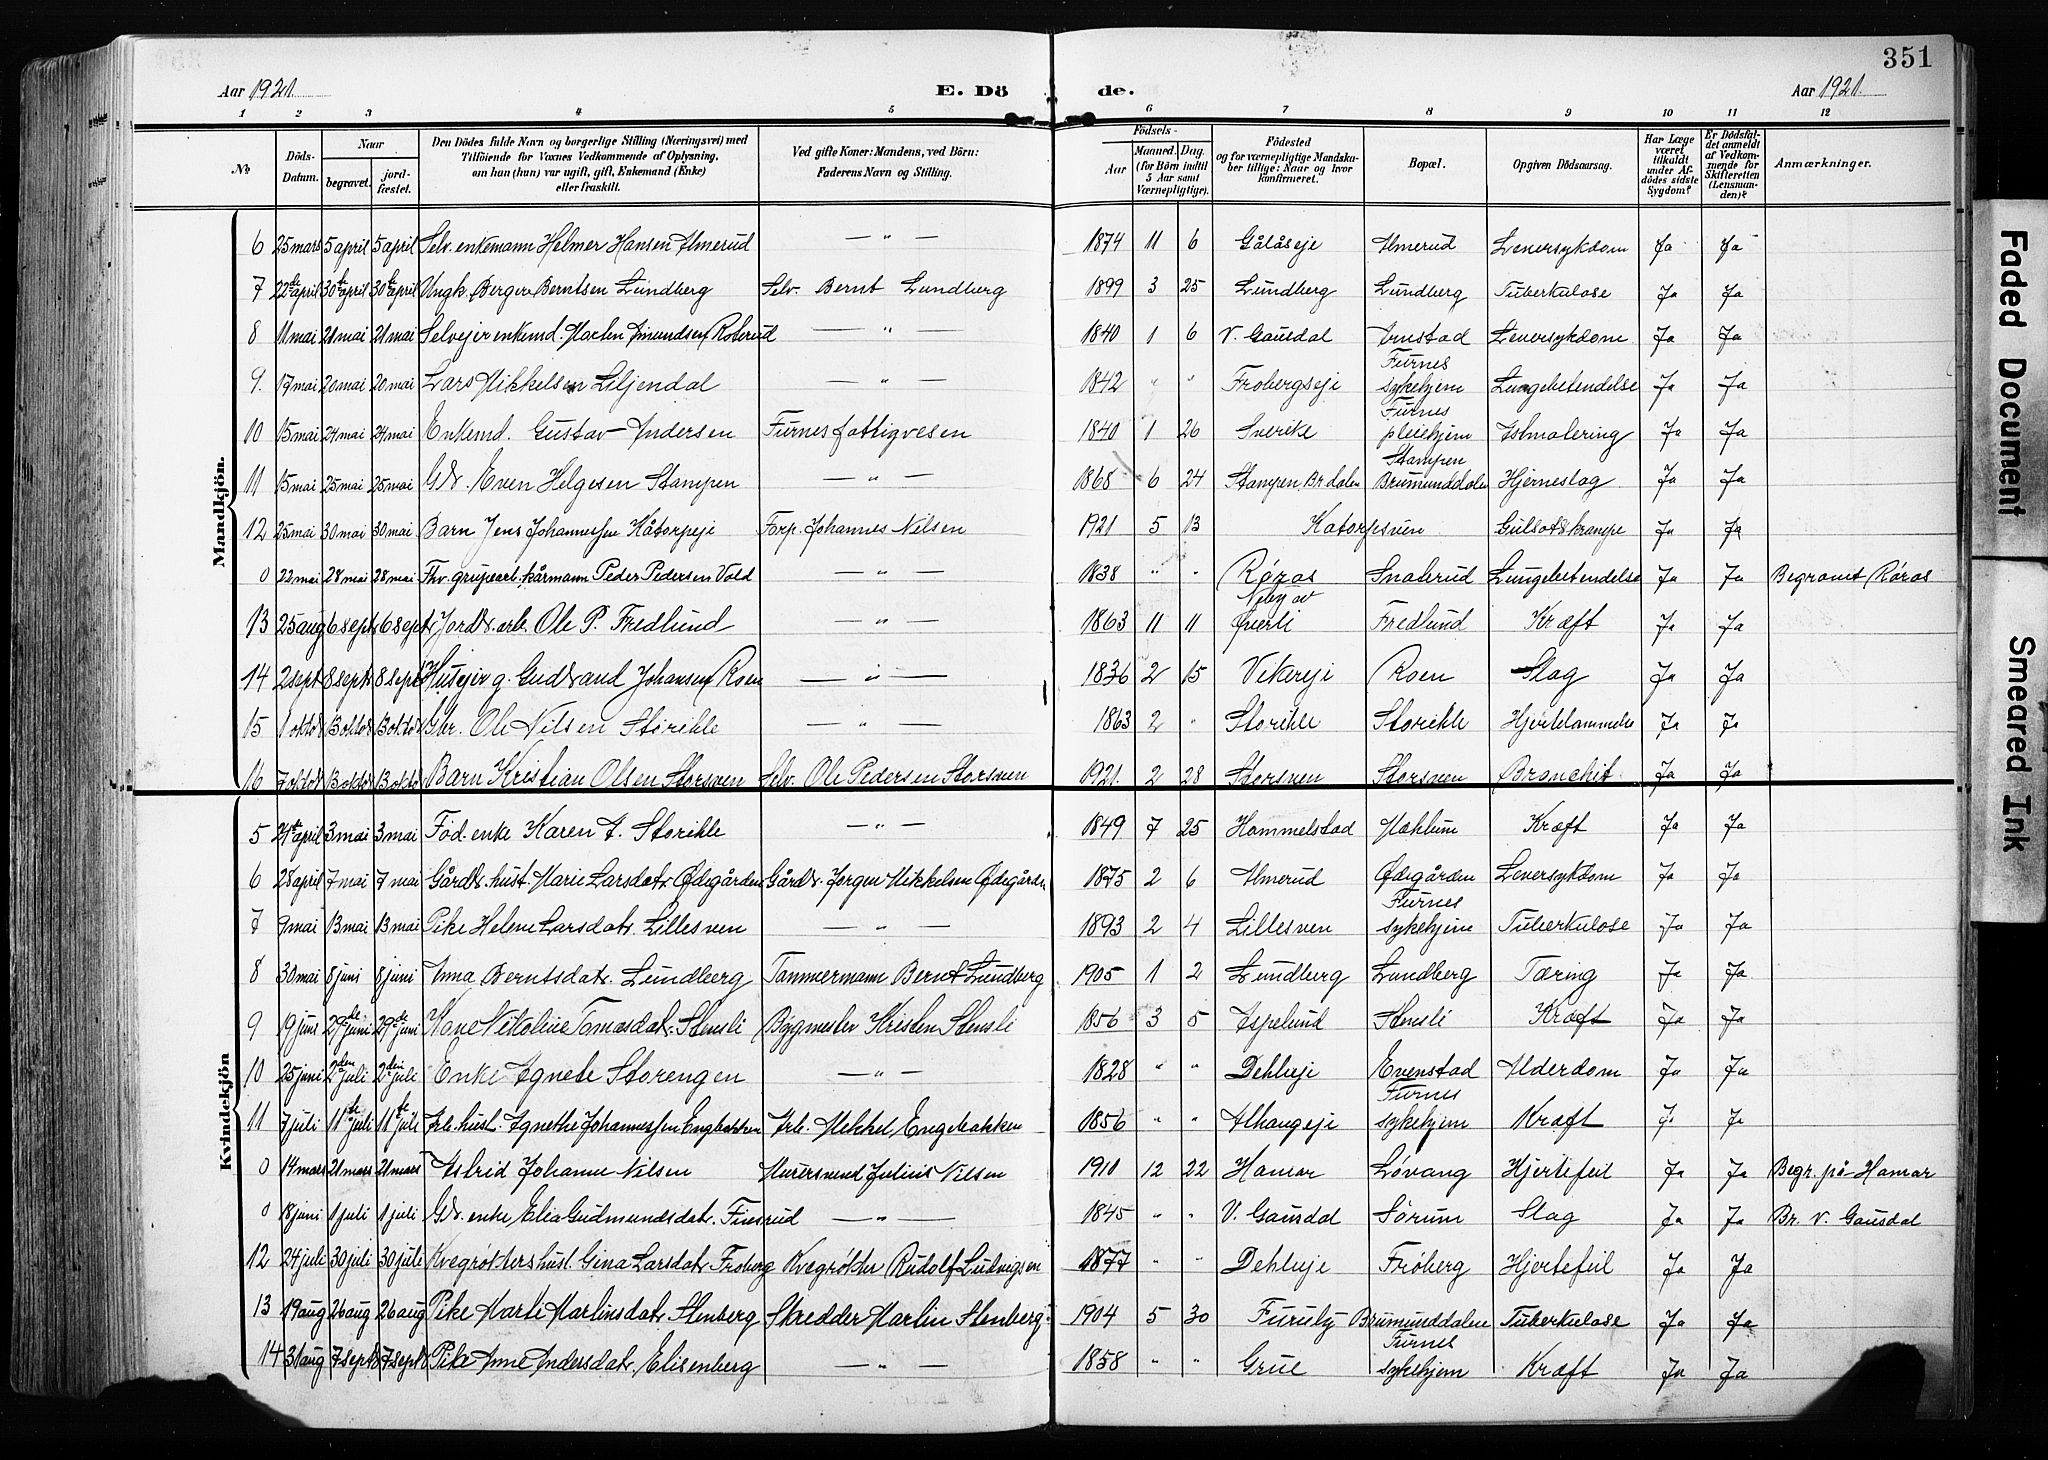 351
Aar 1921. E. Dö de. Aar 1921.
1 2 3 4 5 6 7 8 9 10 11 12
№ Döds-Datum. Naar begravet. jord-fæstet. Den Dödes fulde Navn og borgerlige Stilling (Næringsvei) med Tilföiende for Voxnes Vedkommende af Oplysning, om han (hun) var ugift, gift, Enkemand (Enke) eller fraskilt. Ved gifte Koner: Mandens, ved Börn: Faderens Navn og Stilling. Födsels- Aar Maaned. Dag. (for Börn indtil 5 Aar samt Værnepligtige). Födested og for værnepligtige Mandska-ber tillige: Naar og hvor konfirmeret. Bopæl. Opgiven Dödsaarsag. Har Læge været tilkaldt under Af-dödes sidste Sygdom? Er Dödsfal-det anmeldt af Vedkom-mende for Skifteretten (Lensman-den)? Anmærkninger.
Mandkjön.
6 25 mars 5 april 5 april Selv. enkemann Helmer Hansen Almerud — " — 1874 11 6 Gålåseje Almerud Leversykdom Ja Ja
7 22de april 30te april 30te april Ungk. Berger Berntsen Lundberg Selv. Bernt Lundberg 1899 3 25 Lundberg Lundberg Tuberkulose Ja Ja
8 11 mai 21 mai 21 mai Selvejer enkemd. Marten Amundsen Roterud — " — 1840 1 6 V. Gausdal Arnstad Leversykdom Ja Ja
9. 17 mai 20 mai 20 mai Lars Mikkelsen Liljendal — " — 1842 " " Frobergseje Furnes sykehjem Lungebetendelse Ja Ja
10 15 mai 24 mai 24 mai Enkemd. Gustav Andersen Furnes fattigvesen 1840 1 26 Sverike Furnes pleiehjem Astmatering Ja Ja
11 15 mai 25 mai 25 mai Gdr. Even Helgesen Stampen — " — 1868 6 24 Stampen Br.dalen Stampen Brumunddalen Hjerneslag Ja Ja
12 25 mai 30 mai 30 mai Barn Jens Johannessen Håtorpeje Forp. Johannes Nilsen 1921 5 13 Hatorpsveen Gulsots krampe Ja Ja
0 22 mai 28 mai 28 mai Fhv. grupearb. kårmann Peder Pedersen Vold — " — 1838 " " Røros Snaterud Lungebetendelse Ja Ja Begravet Røros
13 25 aug 6 septr 6 septr Jordbr. arb. Ole P. Fredlund — " — 1863 11 11 Neby av Øverli Fredlund Kræft Ja Ja
14 2 sept 8 septr 8 septr Husejer g. Gudbrand Johansen Roen — " — 1836 2 15 Vikereje Roen Slag Ja Ja
15 1 oktbr 13 oktbr 13 oktbr Gbr. Ole Nilsen Storihle — " — 1863 2 " Storihle Storihle Hjertelammelse Ja Ja
16 7 oktbr 13 oktbr 13 oktbr Barn Kristian Olsen Storsven Selv. Ole Pedersen Storsven 1921. 2 28 Storsven Storsveen Bronchit Ja Ja
Kvindekjön
5 21te april 3 mai 3 mai Föd. enke Karen A. Storihle — " — 1849 7 25 Hammelstad Mahlum Kræft Ja Ja
6 28 april 7 mai 7 mai Gårdbr. hust. Marie Larsdatr. Ødegården Gårdbr. Jørgen Mikkelsen Ødegården 1875 2 6 Almerud Ødegården Leversykdom Ja Ja
7 9 mai 13 mai 13 mai Pike Helene Larsdatr. Lillesven — " — 1893 2 4 Lillesven Furnes sykehjem Tuberkulose Ja Ja
8 30 mai 8 juni 8 juni Anna Berntsdatr. Lundberg Tømmermann Bernt Lundberg 1905 1 2 Lundberg Lundberg Tæring Ja Ja
9 19 juni 29de juni 29de juni Kone Nikoline Tomasdatr. Stensli Bygmester Kristen Stensli 1856 3 5 Aspelund Stensli Kræft Ja Ja
10 25 juni 2den juli 2den juli Enke Agnete Storengen — " — 1828 " " Dehlieje Evenstad Alderdom Ja Ja
11 7 juli 11te juli 11te juli Arb. hust. Agnethe Johannessen Engbakken Arb. Mikkel Engebakken 1856 " " Alhaugeje Furnes sykehjem Kræft Ja Ja
0 14 mars 21 mars 21 mars Astrid Johanne Nilsen Murersvend Julius Nilsen 1910 12 22 Hamar Lövang Hjertefeil Ja Ja Begr. på Hamar
0 18 juni 1 juli 1 juli Gdr. enke Elia Gudmundsdatr. Finsrud — " — 1845 " " V. Gausdal Sørum Slag Ja Ja Br. V. Gausdal
12 24 juli 30 juli 30 juli Kvegrøkters hust. Gina Larsdatr. Froberg Kvegrøkter Rudolf Ludvigsen 1877 " " Dehlieje Frøberg Hjertefeil Ja Ja
13 19 aug 26 aug 26 aug Pike Marte Martinsdatr. Stenberg Skredder Martin Stenberg 1904 5 30 Furuly Brumunddalen Tuberkulose Ja Ja
14 31 aug 7 septr 7 septr Pike Anne Andersdatr. Elisenberg — " — 1858 " " Grue Furnes sykehjem Kræft Ja Ja
Faded Document
Smeared Ink